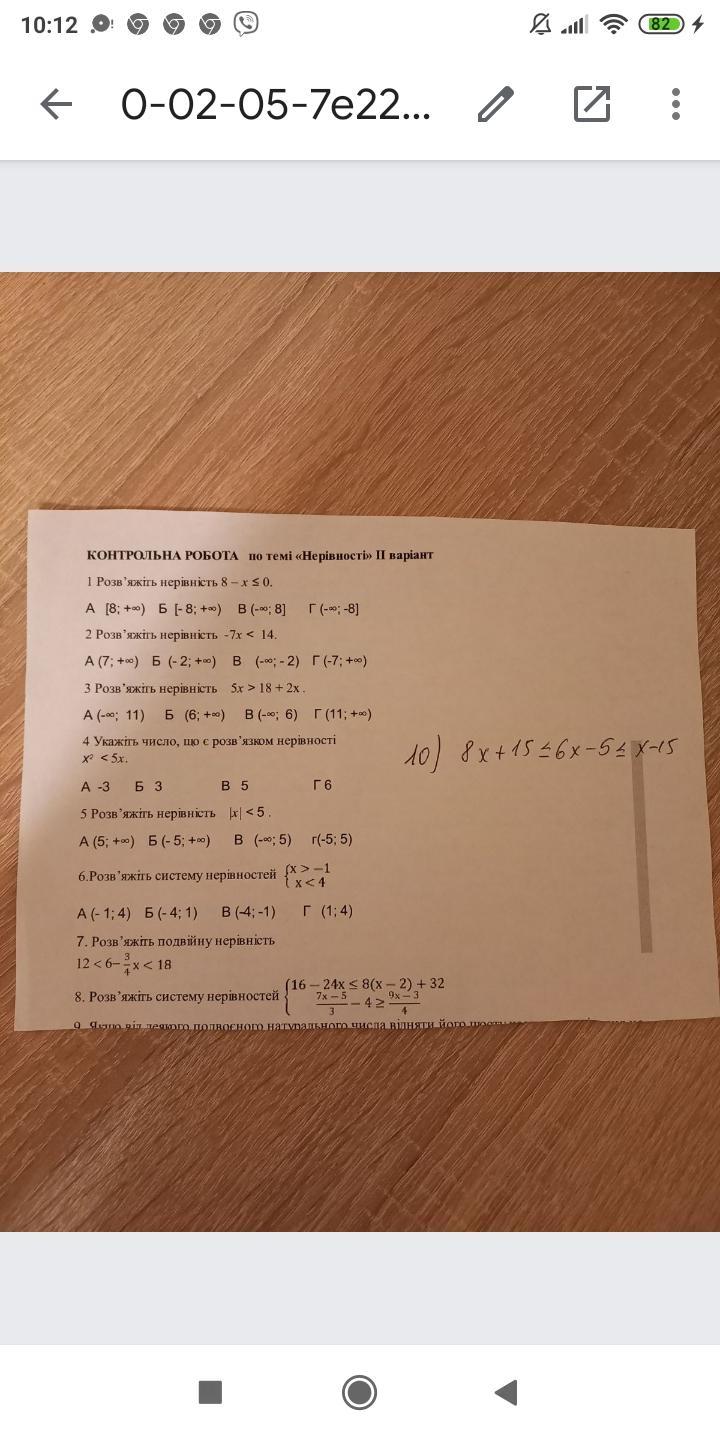 10:12
82
0-02-05-7e22...
КОНТРОЛЬНА РОБОТА по темі «Нерівності» ІІ варіант
1 Розв’яжіть нерівність 8 – x ≤ 0.
А [8; +∞) Б [- 8; +∞) В (-∞; 8] Г (-∞; -8]
2 Розв’яжіть нерівність -7x < 14.
А (7; +∞) Б (- 2; +∞) В (-∞; - 2) Г (-7; +∞)
3 Розв’яжіть нерівність 5x > 18 + 2x .
А (-∞; 11) Б (6; +∞) В (-∞; 6) Г (11; +∞)
4 Укажіть число, що є розв’язком нерівності
x² < 5x.
10) 8x+15≤6x-5≤x-15
А -3 Б 3 В 5 Г 6
5 Розв’яжіть нерівність |x| < 5 .
А (5; +∞) Б (- 5; +∞) В (-∞; 5) г(-5; 5)
6.Розв’яжіть систему нерівностей {x > −1
x < 4
А (- 1; 4) Б (- 4; 1) В (-4; -1) Г (1; 4)
7. Розв’яжіть подвійну нерівність
12 < 6− 3/4 x < 18
8. Розв’яжіть систему нерівностей {16 − 24x ≤ 8(x − 2) + 32
7x − 5/3 − 4 ≥ 9x − 3/4
9. Якщо від деякого подвоєного натурального числа відняти його